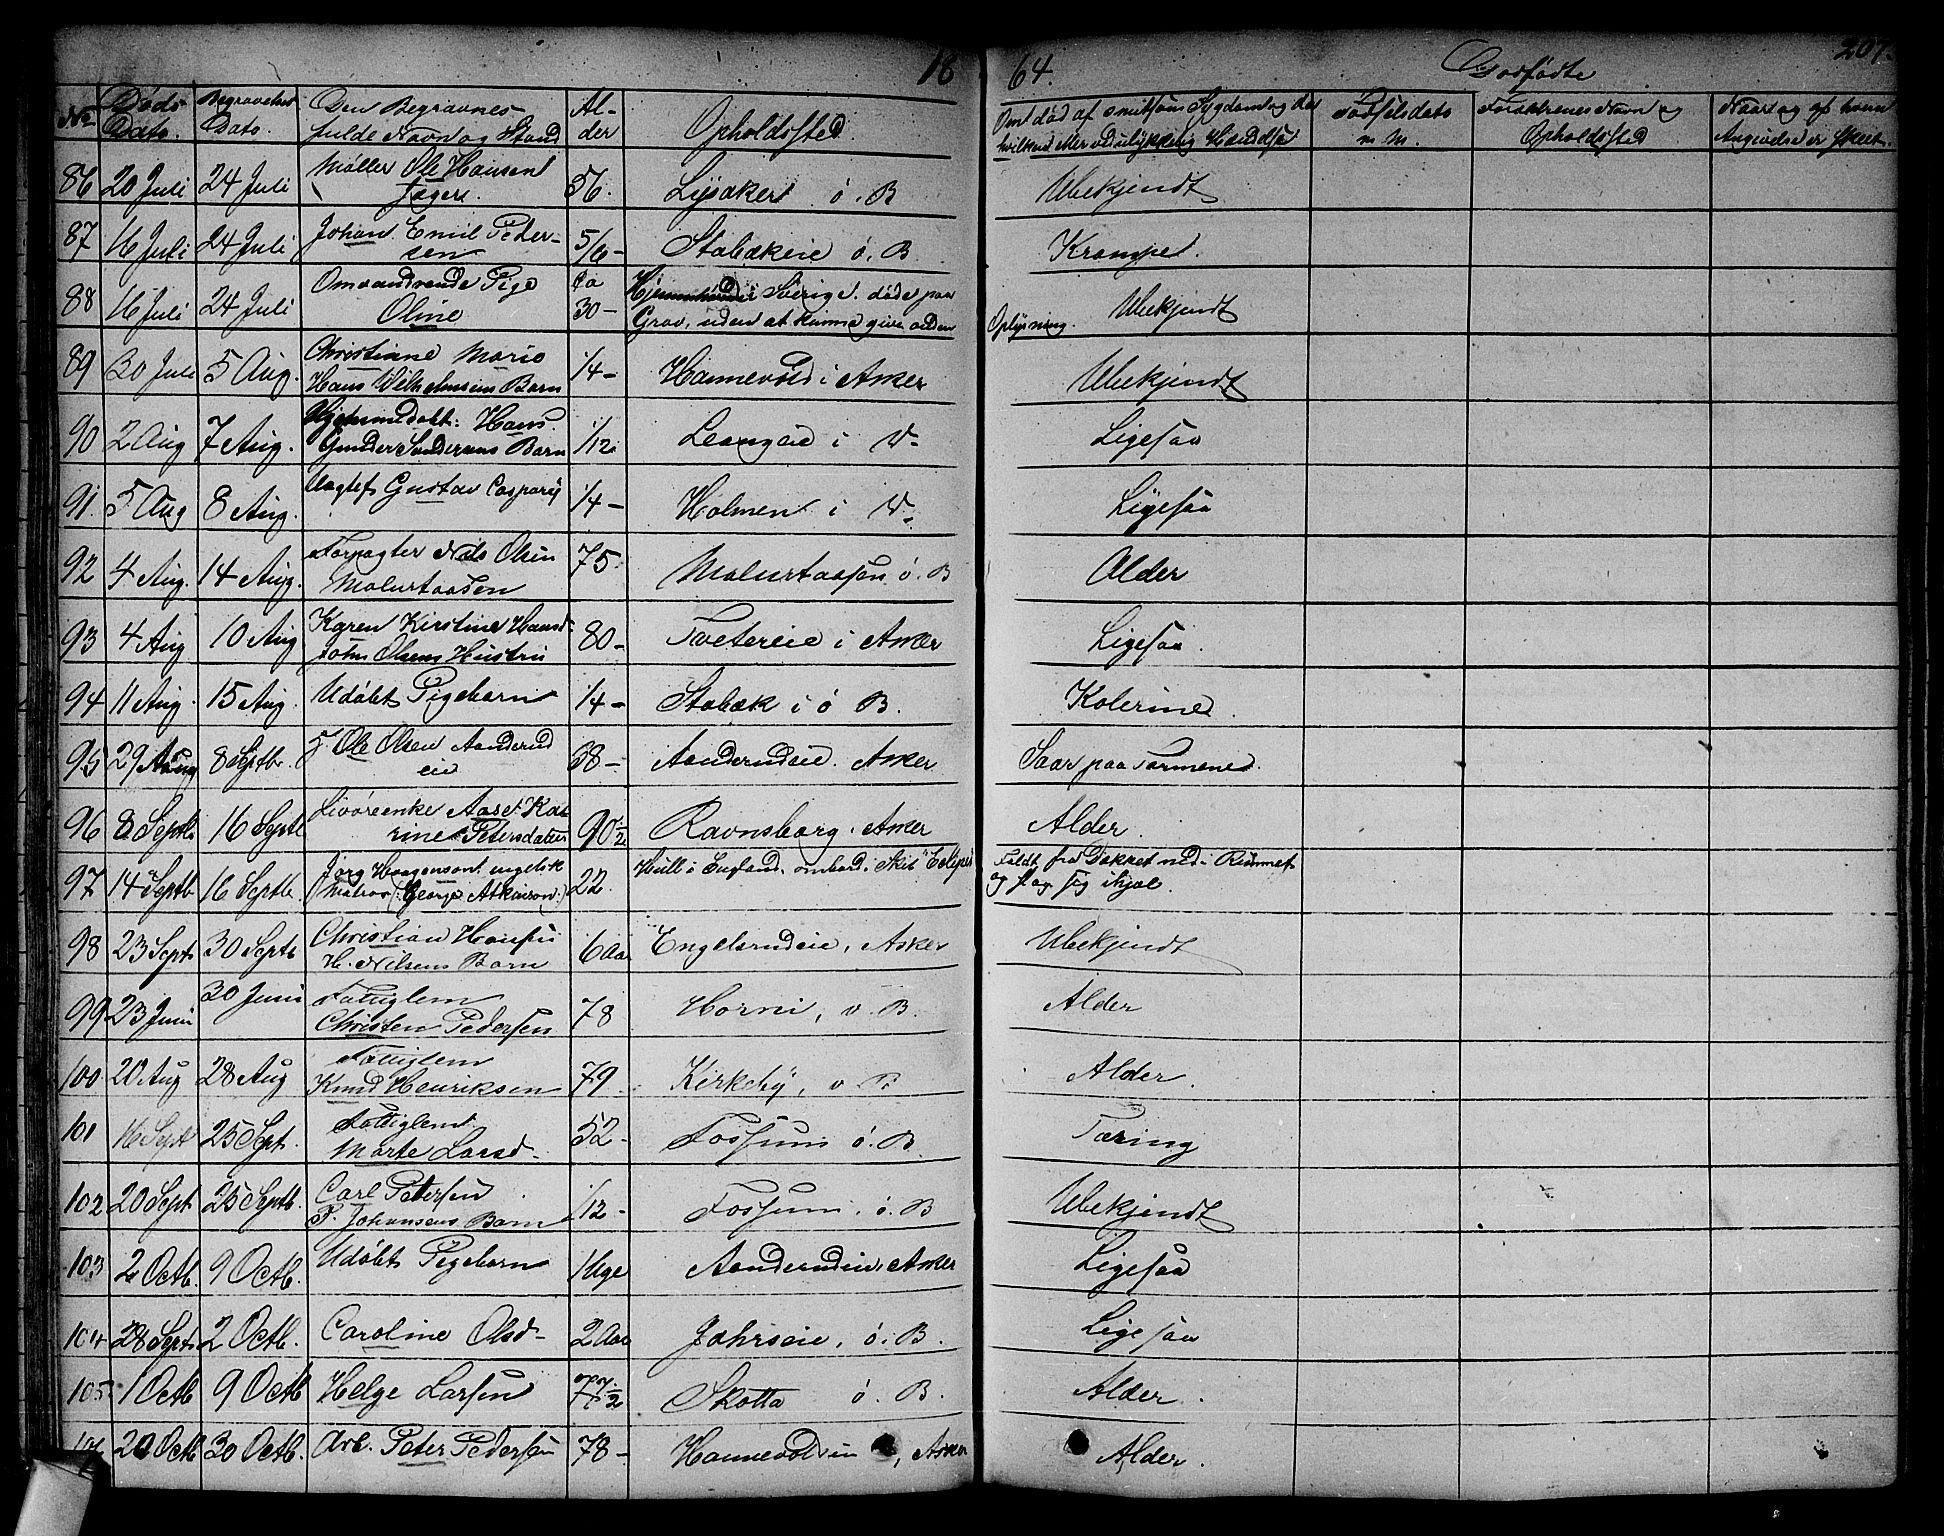 18 64. Dødfødte 207.
No Døds Dato. Begravelses Dato. Den Begravnes fulde Navn og Stand Alder Opholdssted Om død af smitsom Sygdom og da hvilken eller ved ulykkelig Hændelse Fødselsdato m M. Forældrenes Navn og Opholdssted Naar og af hvem Angivelse er skeet.
86 20 Juli 24 Juli Møller Ole Hansen Jager. 56. Lysaker ø. B Ubekjendt
87 16 Juli 24 Juli Johan Emil Petersen 5/6 - Stabækeie ø. B Krampe.
88 16 Juli 24 Juli Omvandrende Pige Oline Ca 30 - i Sverige. døde paa Grav, uden at kunne give anden Oplysning. Ubekjendt
89 30 Juli 5 Aug. Christiane Marie Hans Wilhelmsens Barn 1/4 - Hannevold i Asker Ubekjendt
90 2 Aug 7 Aug. Hjemmedøbt: Hans. Gunder Gundersens Barn 1/12 Leangeie i V- Ligesaa
91 5 Aug 8 Aug. Gustav Caspary 1/4 - Holmen i V- Ligesaa
92 4 Aug. 14 Aug. Forpagter Nils Olsen 75 ø. B Alder
93 4 Aug 10 Aug Karen Kirstine Hansd. John Olsens Hustru 80 - Tvetereie i Asker Ligesaa
94 11 Aug. 15 Aug. Udøbt Pigebarn 1/4 - Stabæk i ø B. Kolerine.
95 29 Aug 8 Septb. F Ole Olsen Aanderud eie 68 - Aanderudeie. Asker Saar paa Tarmene.
96 8 Septb 16 Septb Livøreenke Aase Karine Petersdatter 90 1/2 Ravnsborg. Asker Alder.
97 14 Septb 16 Septb. Jørg Haagenson engelsk Matros (George Atkinson) 22. Hull i England. ombord i Skib "Eclipse" Faldt fra Dækket ned i Rummet og slog sig ihjæl.
98 23 Septb 30 Septb Christian Hansen H. Nilsens Barn 6 Aar Engelsrudeie, Asker Ubekjendt
99 23 Juni 30 Juni Fattiglem Christen Pedersen 78 Horni, v B. Alder
100 20 Aug 28 Aug Fattiglem Knud Henriksen 79 Kirkeby, v B Alder.
101 16 Septb 25 Sept. Fattiglem. Marte Larsd. 52 - Fossum ø. B Tæring
102 20 Sept. 25 Septb. Carl Petersen P. Johansens Barn 1/12 - Fossum, ø. B Ubekjendt
103 2 Octb. 9 Octb. Udøbt Pigebarn 1 Uge Aanderudeie Asker Ligesaa
104 28 Septb 2 Octb. Caroline Olsd- 2 Aar Jahrseie, ø. B. Ligesaa
105 1 Octb 9 Octb Helge Larsen 77 1/2 Skotta ø. B. Alder.
106 20 Octb 30 Octb. Arb. Peter Pedersen 78 - , Asker Alder.